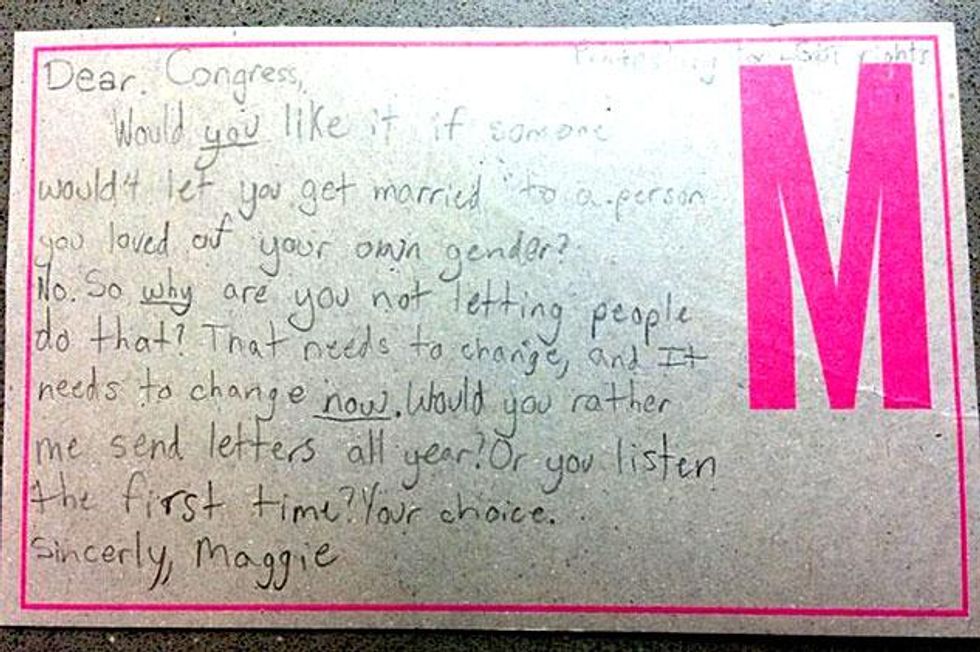 rights
Dear. Congress,
Would you like it if somone
would't let you get married to a person
you loved of your own gender?
No. So why are you not letting people
do that? That needs to change, and It
needs to change now. Would you rather
me send letters all year? Or you listen
the first time? Your choice.
Sincerly, Maggie
M